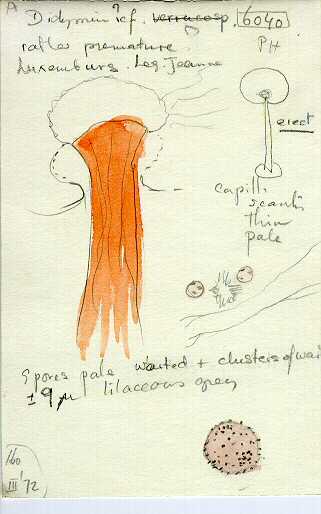 A
Didymium? cf. verrucosp. 6040
rather premature. PH
Luxemburg. Leg Jeanne
erect
capill.
scanty
thin
pale
Spores pale warted + clusters of war
± 9 µ lilaceous grey
160
III '72